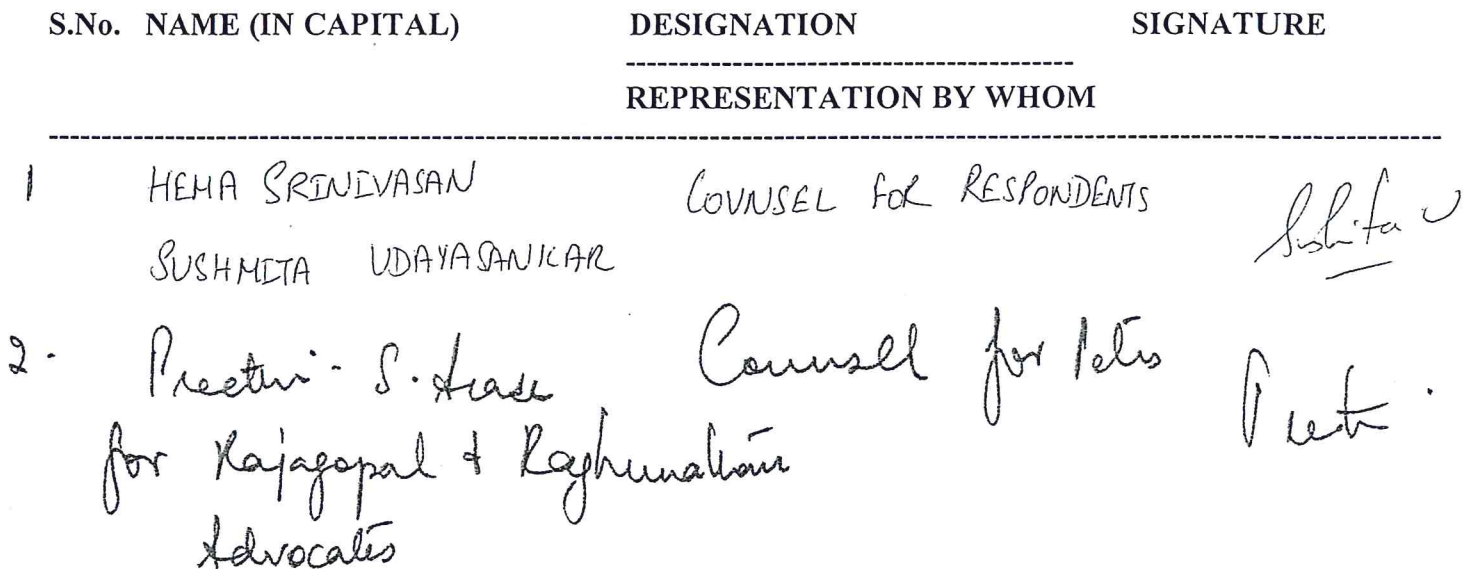 S.No. NAME (IN CAPITAL) DESIGNATION SIGNATURE
REPRESENTATION BY WHOM
1 HEMA SRINIVASAN COUNSEL FOR RESPONDENTS
SUSHMITA UDAYASANKAR Sushita U
2. Preethi. S. Counsel for Petrs
for Rajagopal & Raghunathan
Advocates